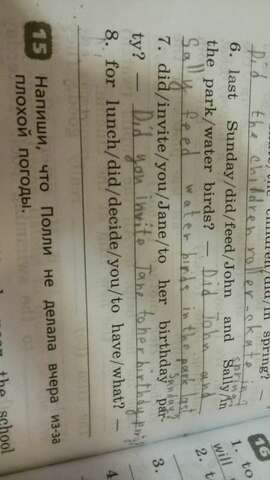 Did the children roller-skate in
spring?
in spring? —
6. last Sunday/did/feed/John and Sally/in
the park/water birds? — Did John and
Sally feed water birds in the park last
Sunday?
7. did/invite/you/Jane/to her birthday par-
ty? — Did you invite Jane to her birthday party?
8. for lunch/did/decide/you/to have/what? —
15 Напиши, что Полли не делала вчера из-за
плохой погоды.
16
1. to
will
2. t
3.
4
the school